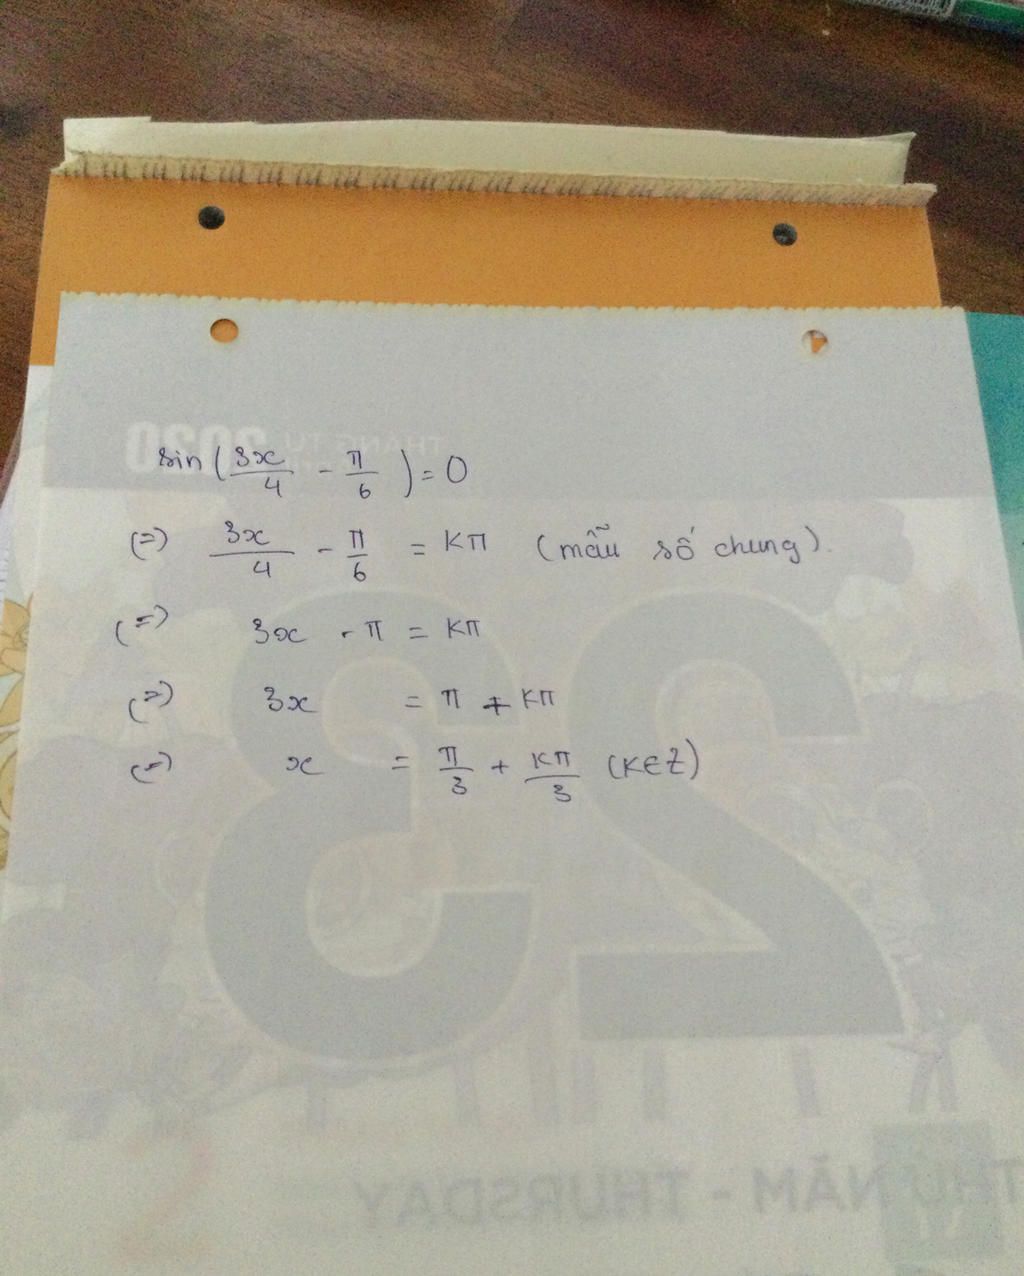 sin(3x/4 - π/6) = 0
(=) 3x/4 - π/6 = kπ (mẫu số chung).
(=) 3x - π = kπ
(=) 3x = π + kπ
(=) x = π/3 + kπ/3 (k∈Z)
THÁNG TƯ 2020
23
THỨ NĂM - THURSDAY